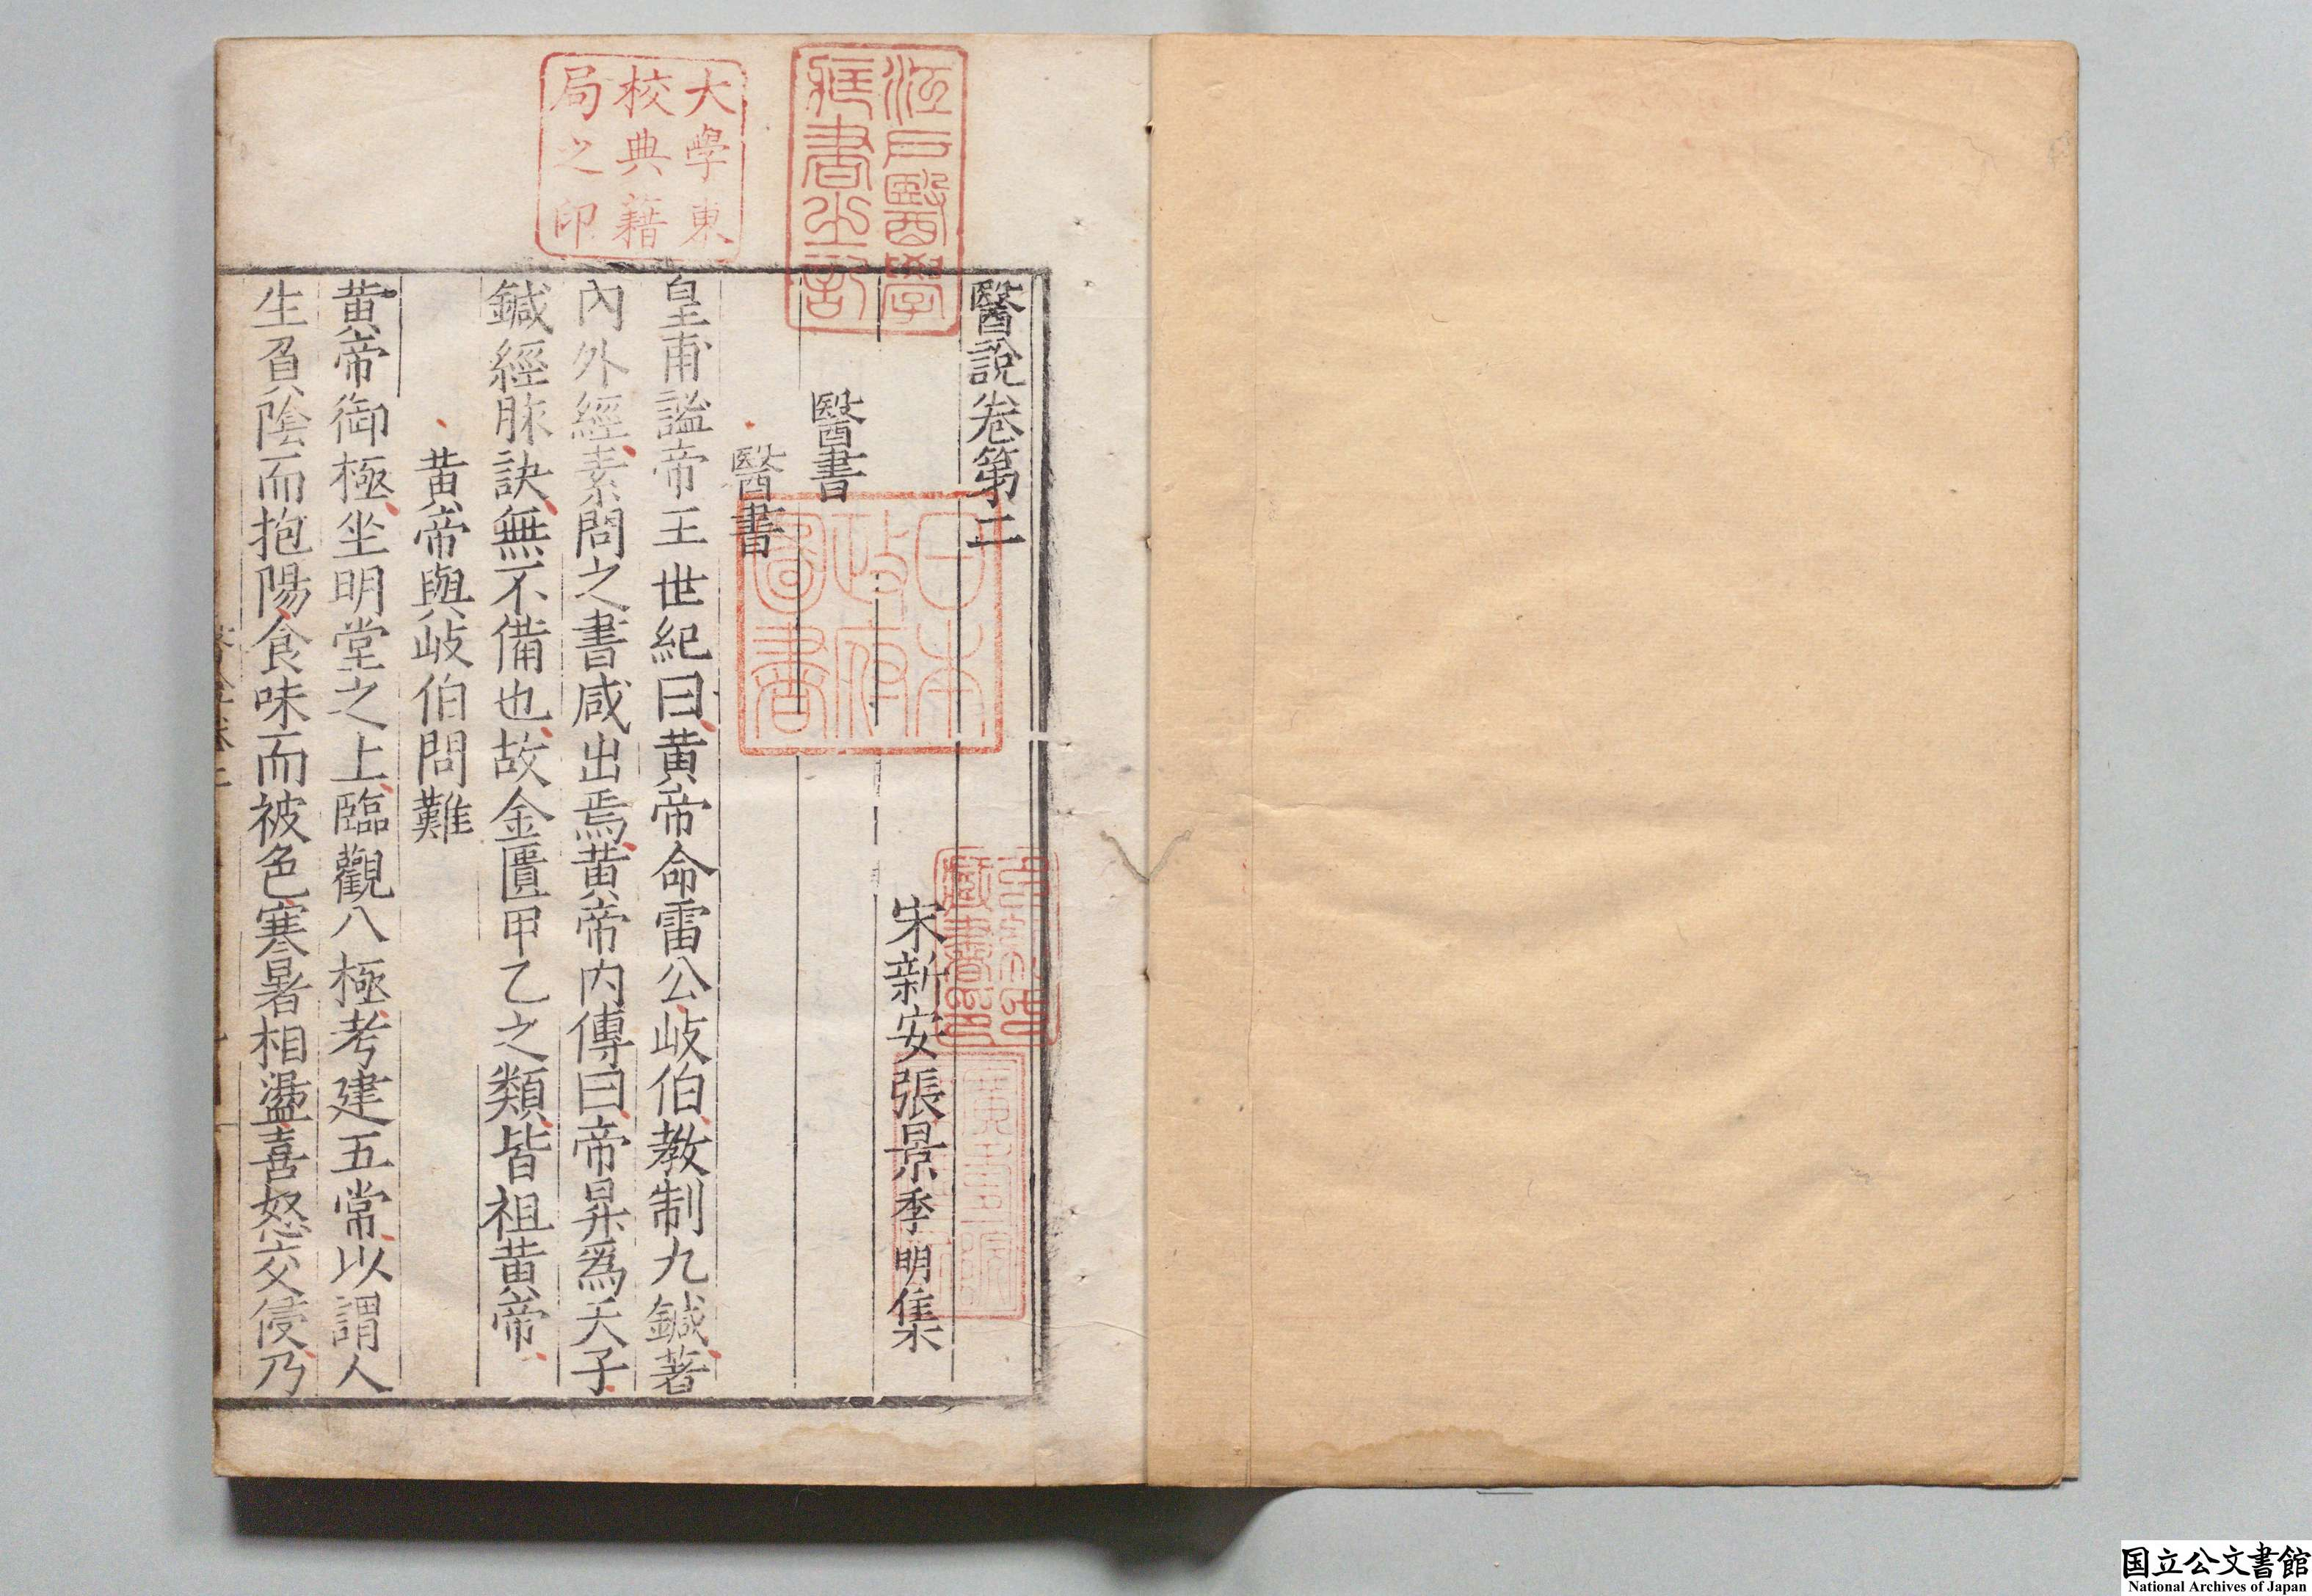 醫說卷第二
宋新安張景季明集
醫書
醫書
皇甫謐帝王世紀曰黄帝命雷公岐伯教制九鍼著
內外經素問之書咸出焉黄帝内傳曰帝昇爲天子
鍼經脉訣無不備也故金匱甲乙之類皆祖黄帝
黄帝與岐伯問難
黄帝御極坐明堂之上臨觀八極考建五常以謂人
生負陰而抱陽食味而被色寒暑相盪喜怒交侵乃
江戶醫學
藏書之記
大學東
校典籍
局之印
日本
政府
圖書
藏書
国立公文書館
National Archives of Japan